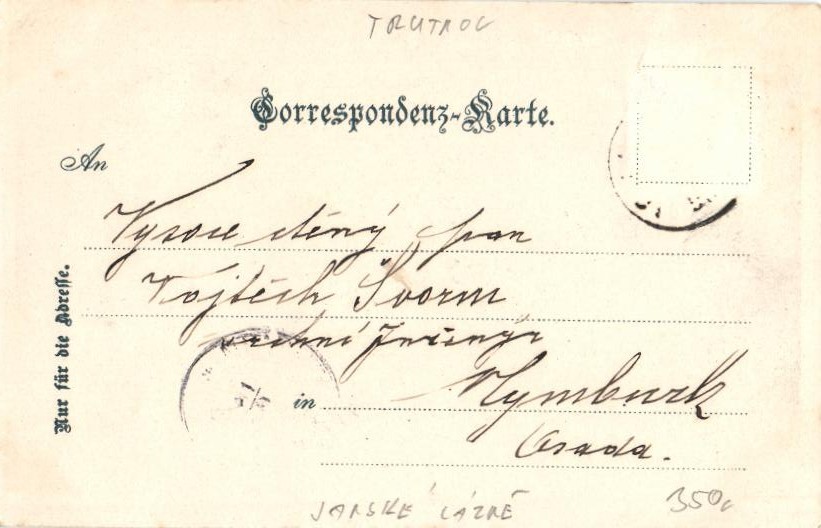 TRUTNOV
Correspondenz-Karte.
An
Vysoce ctěný pan
Vojtěch Švorm
vrchní
in Nymburk
Osada.
Nur für die Adresse.
JANSKÉ LÁZNĚ
350,